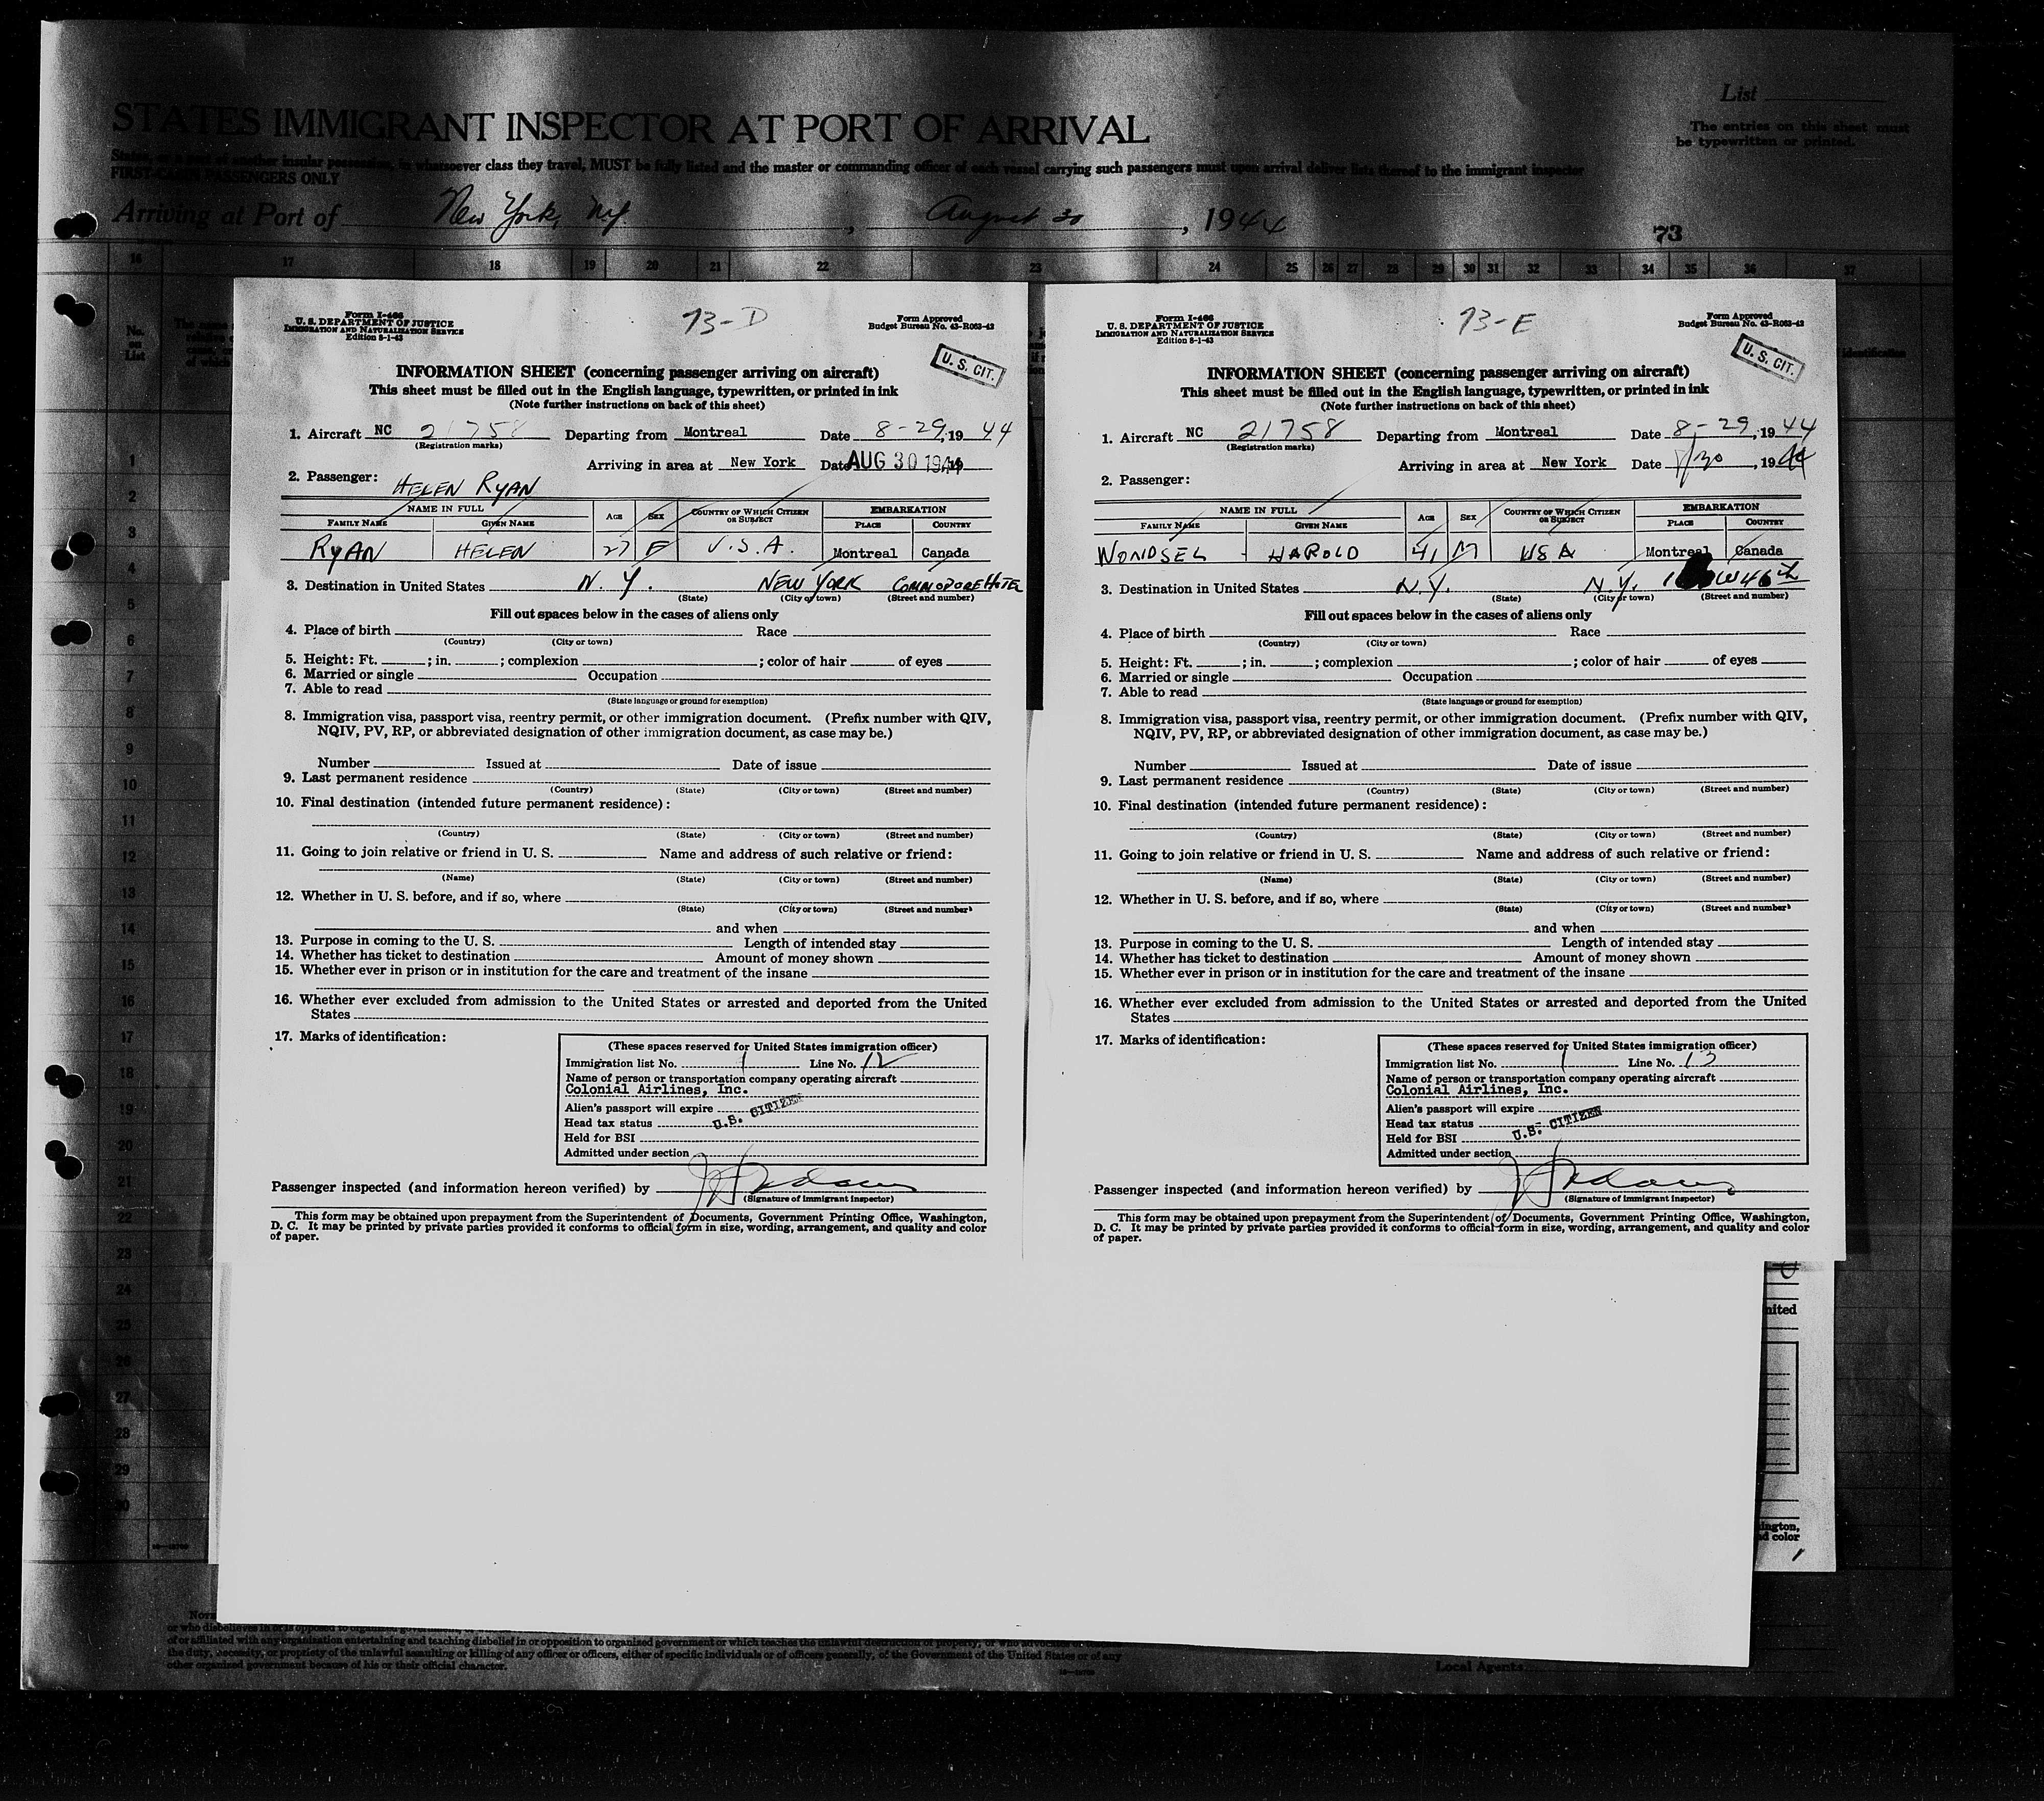 List
STATES IMMIGRANT INSPECTOR AT PORT OF ARRIVAL
The entries on this sheet must
be typewritten or printed.
whatsoever class they travel, MUST be fully listed and the master or commanding officer of each vessel carrying such passengers must upon arrival deliver lists thereof to the immigrant inspector
FIRST-CABIN PASSENGERS ONLY
Arriving at Port of New York, N.Y. , August 30 , 1944
73
16 17 18 19 20 21 22 23 24 25 26 27 28 29 30 31 32 33 34 35 36 37
No.
on
List
1
2
3
4
5
6
7
8
9
10
11
12
13
14
15
16
17
18
19
20
21
22
23
24
25
26
27
28
29
30
Form I-466
U. S. DEPARTMENT OF JUSTICE
IMMIGRATION AND NATURALIZATION SERVICE
Edition 8-1-43
73-D
Form Approved
Budget Bureau No. 43-R063-42
U. S. CIT.
INFORMATION SHEET (concerning passenger arriving on aircraft)
This sheet must be filled out in the English language, typewritten, or printed in ink
(Note further instructions on back of this sheet)
1. Aircraft NC 21758 Departing from Montreal Date 8-29, 19 44
(Registration marks)
Arriving in area at New York Date AUG 30 1944
2. Passenger: HELEN RYAN
NAME IN FULL AGE SEX COUNTRY OF WHICH CITIZEN OR SUBJECT EMBARKATION
FAMILY NAME GIVEN NAME PLACE COUNTRY
RYAN HELEN 27 F U.S.A. Montreal Canada
3. Destination in United States N.Y. NEW YORK COMMODORE HOTEL
(State) (City or town) (Street and number)
Fill out spaces below in the cases of aliens only
4. Place of birth Race
(Country) (City or town)
5. Height: Ft. ; in. ; complexion ; color of hair of eyes
6. Married or single Occupation
7. Able to read
(State language or ground for exemption)
8. Immigration visa, passport visa, reentry permit, or other immigration document. (Prefix number with QIV,
NQIV, PV, RP, or abbreviated designation of other immigration document, as case may be.)
Number Issued at Date of issue
9. Last permanent residence
(Country) (State) (City or town) (Street and number)
10. Final destination (intended future permanent residence):
(Country) (State) (City or town) (Street and number)
11. Going to join relative or friend in U. S. Name and address of such relative or friend:
(Name) (State) (City or town) (Street and number)
12. Whether in U. S. before, and if so, where
(State) (City or town) (Street and number)
and when
13. Purpose in coming to the U. S. Length of intended stay
14. Whether has ticket to destination Amount of money shown
15. Whether ever in prison or in institution for the care and treatment of the insane
16. Whether ever excluded from admission to the United States or arrested and deported from the United
States
17. Marks of identification:
(These spaces reserved for United States immigration officer)
Immigration list No. 1 Line No. 12
Name of person or transportation company operating aircraft
Colonial Airlines, Inc.
Alien's passport will expire
Head tax status U.S. CITIZEN
Held for BSI
Admitted under section
Passenger inspected (and information hereon verified) by
(Signature of immigrant inspector)
This form may be obtained upon prepayment from the Superintendent of Documents, Government Printing Office, Washington,
D. C. It may be printed by private parties provided it conforms to official form in size, wording, arrangement, and quality and color
of paper.
Form I-466
U. S. DEPARTMENT OF JUSTICE
IMMIGRATION AND NATURALIZATION SERVICE
Edition 8-1-43
73-E
Form Approved
Budget Bureau No. 43-R063-42
U. S. CIT.
INFORMATION SHEET (concerning passenger arriving on aircraft)
This sheet must be filled out in the English language, typewritten, or printed in ink
(Note further instructions on back of this sheet)
1. Aircraft NC 21758 Departing from Montreal Date 8-29, 19 44
(Registration marks)
Arriving in area at New York Date 8/30, 1944
2. Passenger:
NAME IN FULL AGE SEX COUNTRY OF WHICH CITIZEN OR SUBJECT EMBARKATION
FAMILY NAME GIVEN NAME PLACE COUNTRY
WONDSEL HAROLD 41 M USA Montreal Canada
3. Destination in United States N.Y. N.Y. W 46th
(State) (City or town) (Street and number)
Fill out spaces below in the cases of aliens only
4. Place of birth Race
(Country) (City or town)
5. Height: Ft. ; in. ; complexion ; color of hair of eyes
6. Married or single Occupation
7. Able to read
(State language or ground for exemption)
8. Immigration visa, passport visa, reentry permit, or other immigration document. (Prefix number with QIV,
NQIV, PV, RP, or abbreviated designation of other immigration document, as case may be.)
Number Issued at Date of issue
9. Last permanent residence
(Country) (State) (City or town) (Street and number)
10. Final destination (intended future permanent residence):
(Country) (State) (City or town) (Street and number)
11. Going to join relative or friend in U. S. Name and address of such relative or friend:
(Name) (State) (City or town) (Street and number)
12. Whether in U. S. before, and if so, where
(State) (City or town) (Street and number)
and when
13. Purpose in coming to the U. S. Length of intended stay
14. Whether has ticket to destination Amount of money shown
15. Whether ever in prison or in institution for the care and treatment of the insane
16. Whether ever excluded from admission to the United States or arrested and deported from the United
States
17. Marks of identification:
(These spaces reserved for United States immigration officer)
Immigration list No. 1 Line No. 13
Name of person or transportation company operating aircraft
Colonial Airlines, Inc.
Alien's passport will expire
Head tax status U.S. CITIZEN
Held for BSI
Admitted under section
Passenger inspected (and information hereon verified) by
(Signature of immigrant inspector)
This form may be obtained upon prepayment from the Superintendent of Documents, Government Printing Office, Washington,
D. C. It may be printed by private parties provided it conforms to official form in size, wording, arrangement, and quality and color
of paper.
nited
ington,
nd color
of or affiliated with any organization entertaining and teaching disbelief in or opposition to organized government or which teaches the unlawful destruction of property, or who advocates
the duty, necessity, or propriety of the unlawful assaulting or killing of any officer or officers, either of specific individuals or of officers generally, of the Government of the United States or of any
other organized government because of his or their official character.
Local Agents